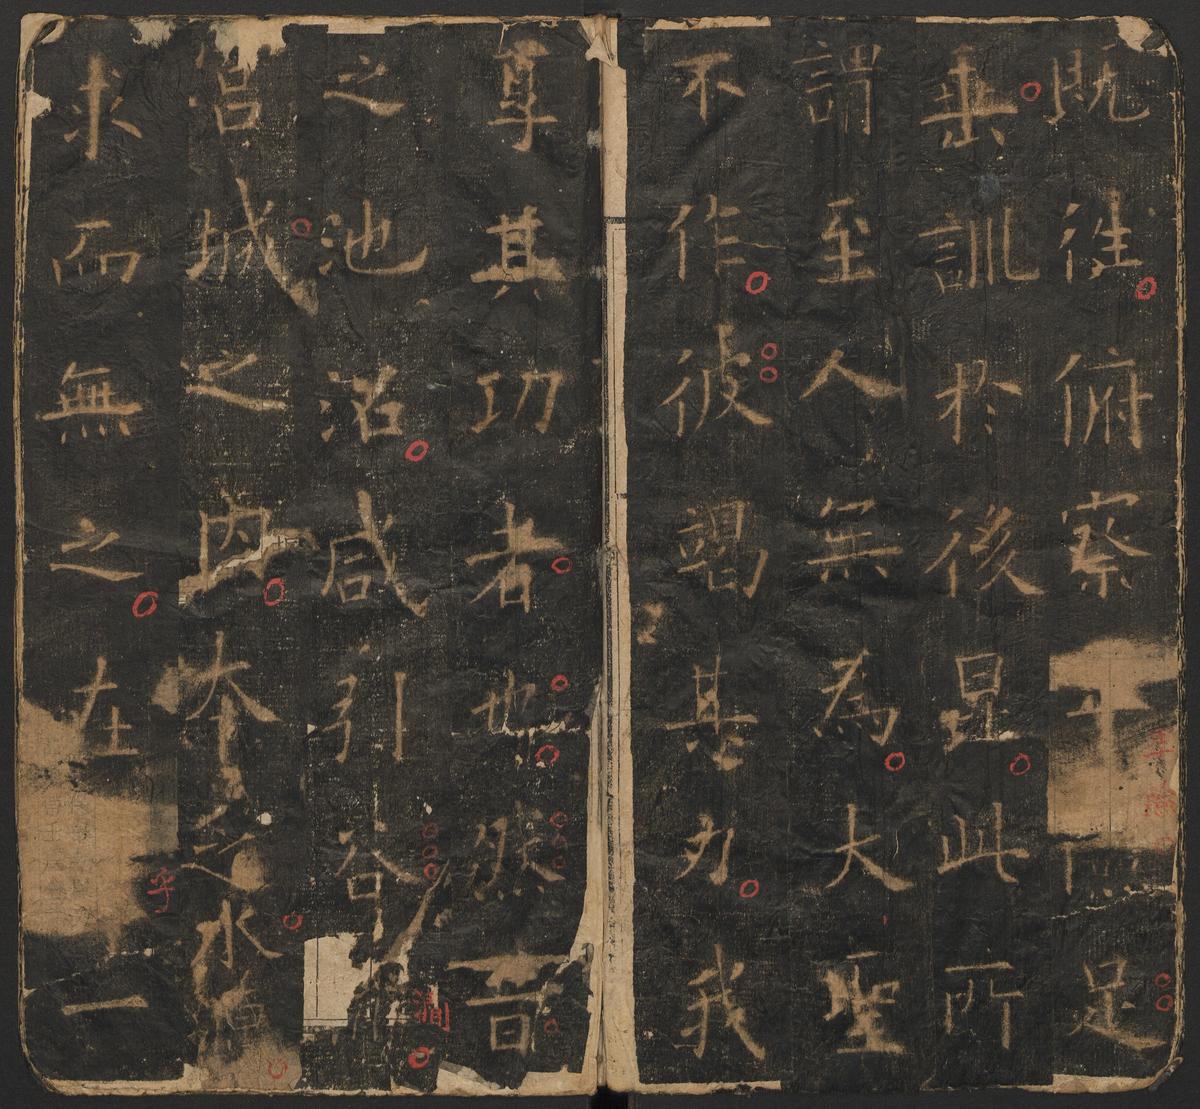 既往俯察足
垂訓於後昆此所
謂至人無為大聖
不作彼竭其力我
享其功者也然昔
之池沼咸引谷澗
宮城之內本乏水源
求而無之在乎一